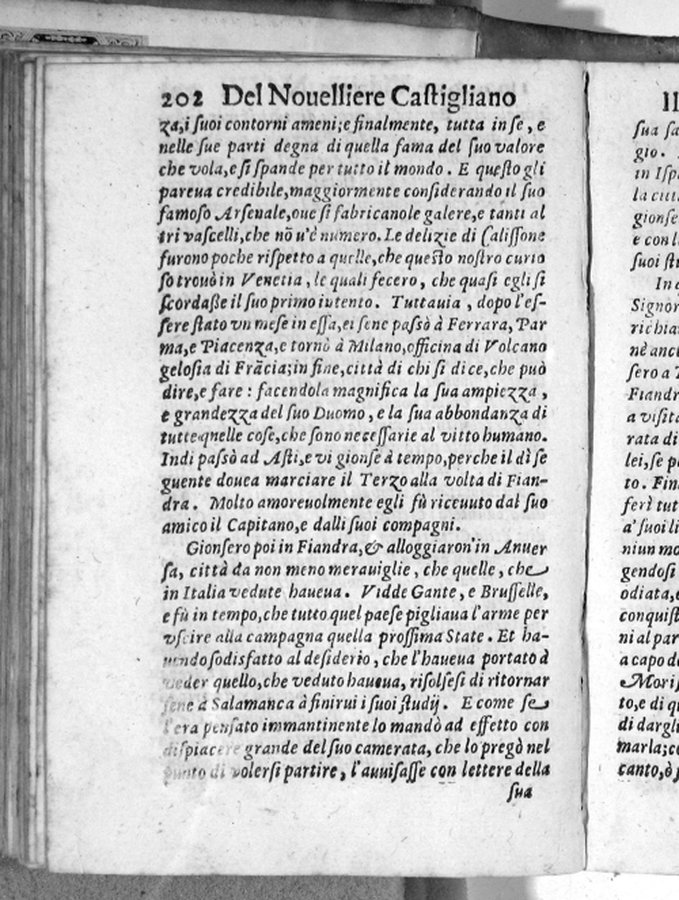 202 Del Nouelliere Castigliano
za,i ſuoi contorni ameni;e finalmente, tutta in ſe, e
nelle ſue parti degna di quella fama del ſuo valore
che vola,e ſi ſpande per tutto il mondo. E queſto gli
pareua credibile,maggiormente conſiderando il ſuo
famoſo Arſenale,oue ſi fabricano le galere,e tanti al
tri vaſcelli,che nõ u'è numero. Le delizie di Caliſſone
furono poche riſpetto a quelle,che queſto noſtro curio
ſo trouò in Venetia, le quali fecero, che quaſi egli ſi
ſcordaße il ſuo primo intento. Tuttauia, dopo l'eſ-
ſere ſtato vn meſe in eſſa,ei ſene paſsò à Ferrara, Par
ma,e Piacenza,e tornò à Milano,officina di Volcano
geloſia di Frãcia;in fine,città di chi ſi dice,che può
dire,e fare : facendola magnifica la ſua ampiezza,
e grandezza del ſuo Duomo, e la ſua abbondanza di
tutte quelle coſe,che ſono neceſſarie al vitto humano.
Indi paſsò ad Aſti,e vi gionſe à tempo,perche il dì ſe
guente douea marciare il Terzo alla volta di Fian-
dra. Molto amoreuolmente egli fù riceuuto dal ſuo
amico il Capitano,e dalli ſuoi compagni.
Gionſero poi in Fiandra,& alloggiaron'in Anuer
ſa, città da non meno merauiglie, che quelle, che
in Italia vedute haueua. Vidde Gante, e Bruſſelle,
e fù in tempo,che tutto quel paeſe pigliaua l'arme per
vſcire alla campagna quella proſſima State. Et ha-
uendo ſodisfatto al deſiderio, che l'haueua portato à
veder quello,che veduto haueua, riſolſeſi di ritornar
ſene à Salamanca à finirui i ſuoi ſtudij. E come ſe
l'era penſato immantinente lo mandò ad effetto con
diſpiacere grande del ſuo camerata, che lo pregò nel
punto di volerſi partire, l'auuiſaſſe con lettere della
ſua
Il
ſua ſa
gio.
in Iſp
la citt
gionſe
e con l
ſuoi ſt
In
Signor
richia
nè anc
ſero a
Fiandr
a viſit
rata di
lei,ſe p
to. Fin
ferì tut
a' ſuoi li
niun mo
gendoſi
odiata,
conquiſt
ni al par
a capo d
Moriſ
to,e di q
di dargl
marla;c
canto,ò